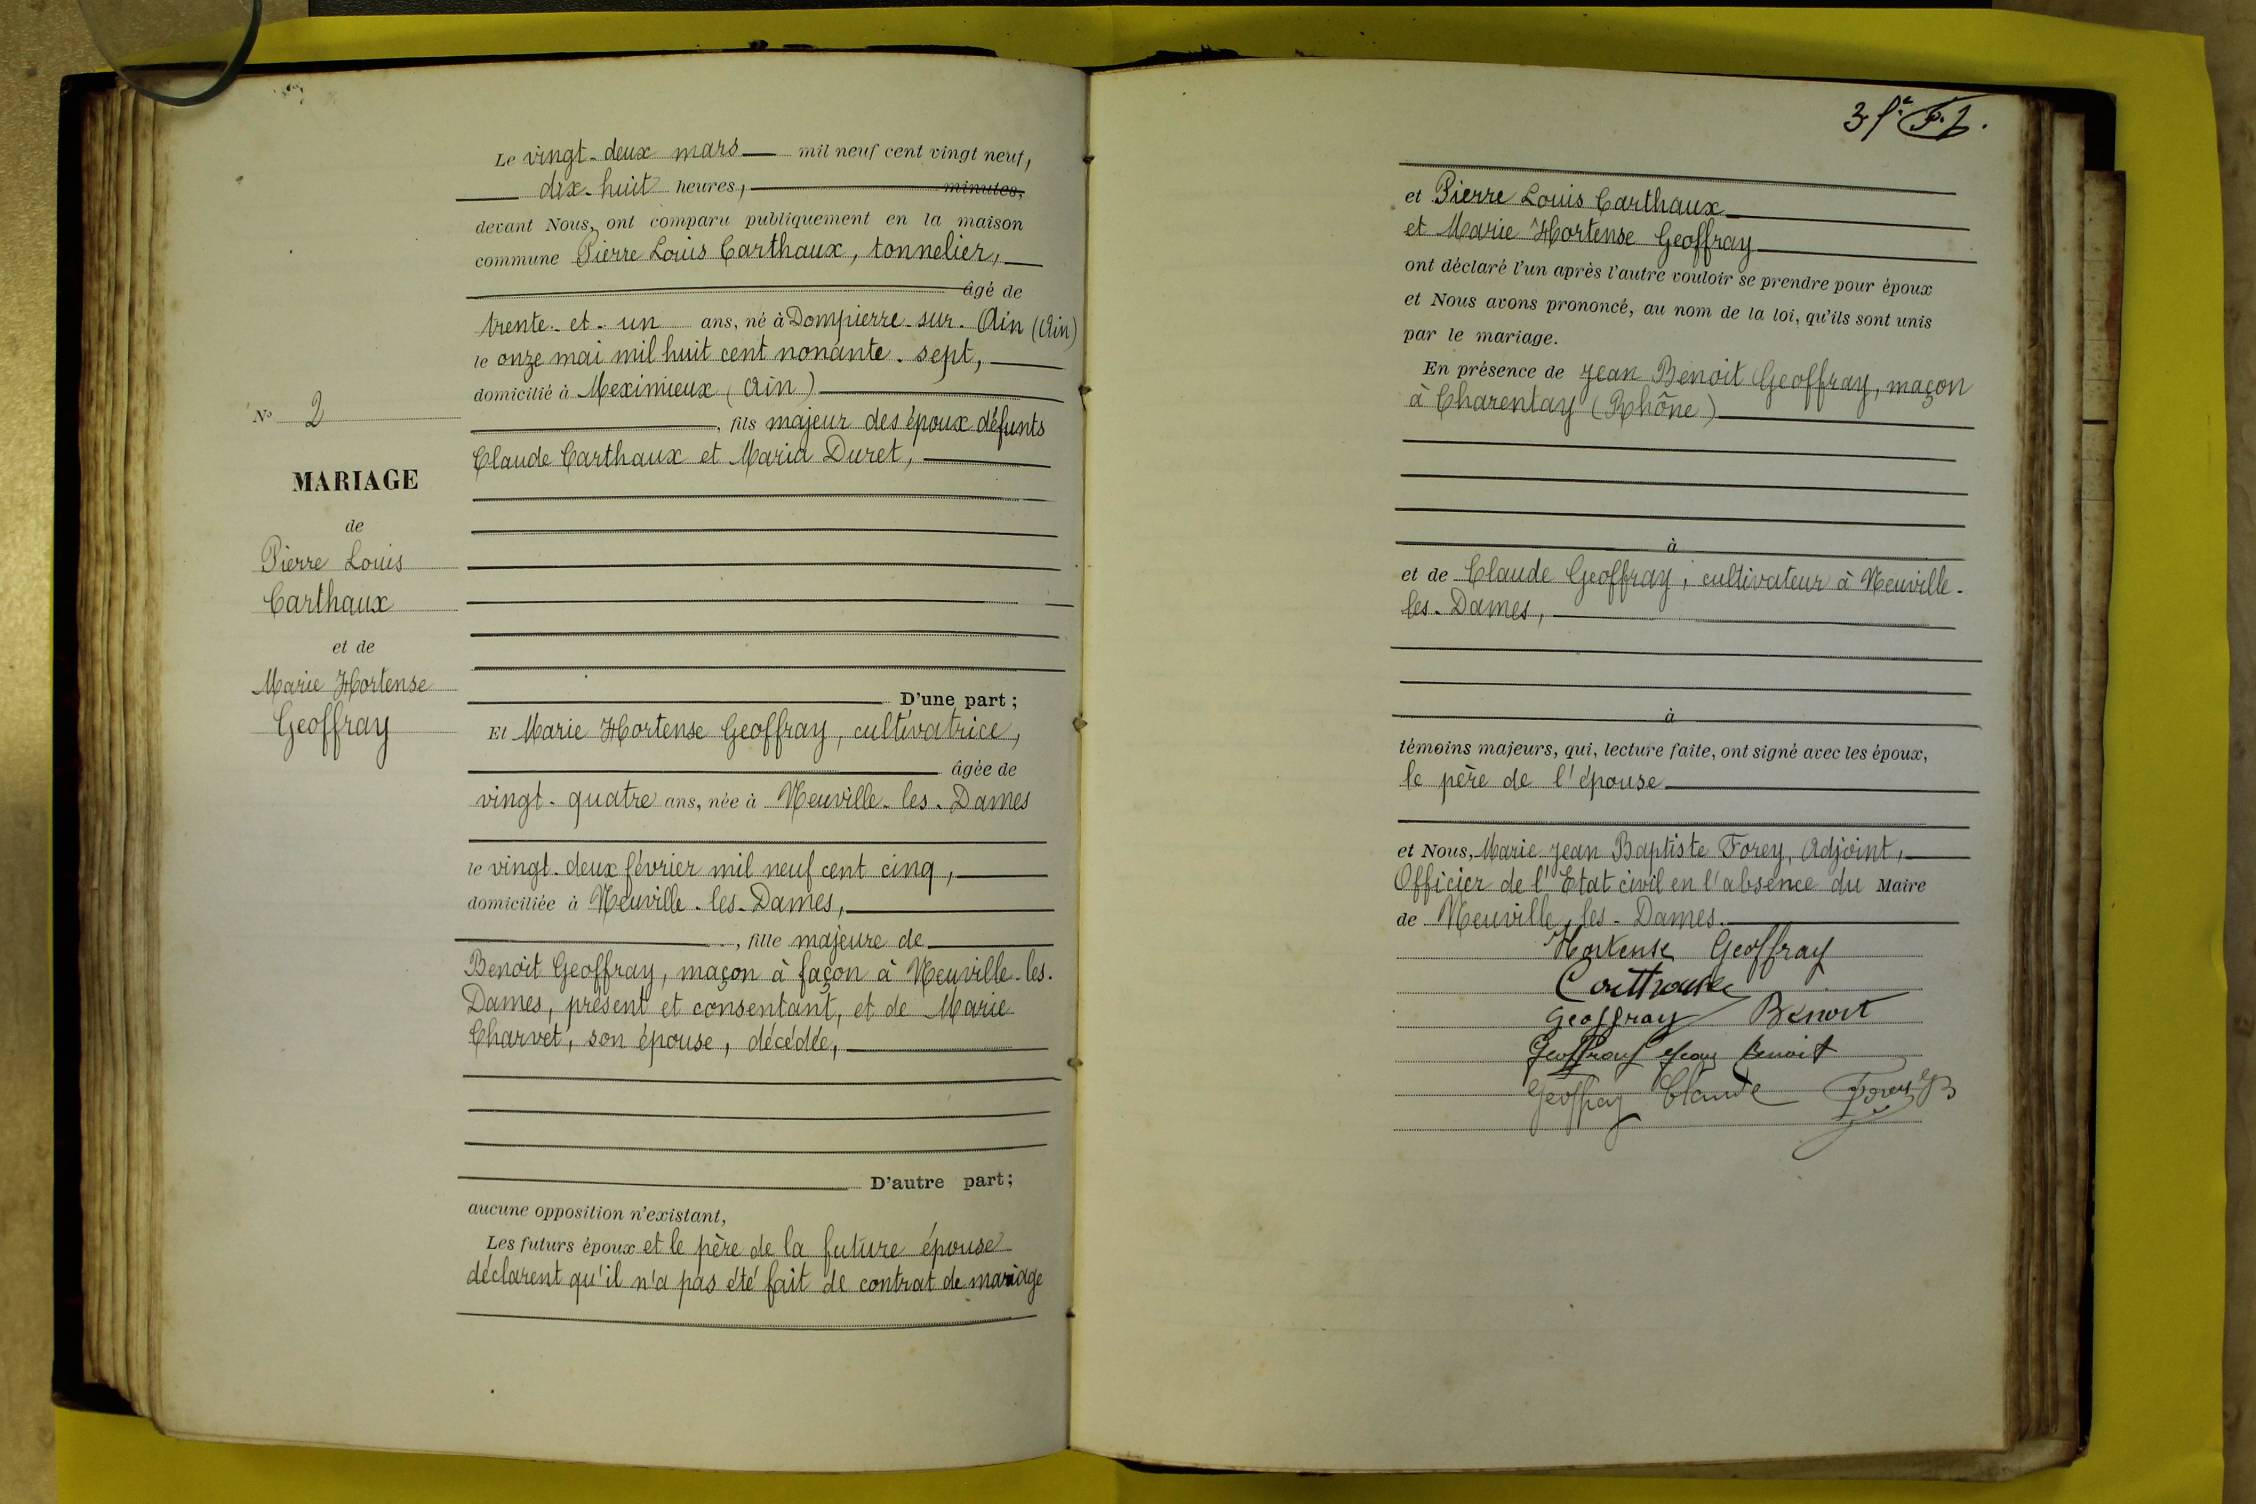 Le vingt-deux mars mil neuf cent vingt neuf,
dix-huit heures, minutes,
devant Nous, ont comparu publiquement en la maison
commune Pierre Louis Carthaux, tonnelier,
âgé de
trente-et-un ans, né à Dompierre-sur-Ain (Ain)
le onze mai mil huit cent nonante-sept,
domicilié à Meximieux (Ain)
, fils majeur des époux défunts
Claude Carthaux et Maria Duret,
N° 2
MARIAGE
de
Pierre Louis
Carthaux
et de
Marie Hortense
Geoffray
D'une part ;
Et Marie Hortense Geoffray, cultivatrice,
âgée de
vingt-quatre ans, née à Neuville-les-Dames
le vingt-deux février mil neuf cent cinq,
domiciliée à Neuville-les-Dames,
, fille majeure de
Benoit Geoffray, maçon à façon à Neuville-les-
Dames, présent et consentant, et de Marie
Charvet, son épouse, décédée,
D'autre part ;
aucune opposition n'existant,
Les futurs époux et le père de la future épouse
déclarent qu'il n'a pas été fait de contrat de mariage
3
et Pierre Louis Carthaux
et Marie Hortense Geoffray
ont déclaré l'un après l'autre vouloir se prendre pour époux
et Nous avons prononcé, au nom de la loi, qu'ils sont unis
par le mariage.
En présence de Jean Benoit Geoffray, maçon
à Charentay (Rhône)
à
et de Claude Geoffray, cultivateur à Neuville-
les-Dames,
à
témoins majeurs, qui, lecture faite, ont signé avec les époux,
le père de l'épouse
et Nous, Marie Jean Baptiste Forey, Adjoint,
Officier de l'Etat civil en l'absence du Maire
de Neuville-les-Dames.
Hortense Geoffray
Geoffray Benoit
Geoffray Jean Benoit
Geoffray Claude Forey JB